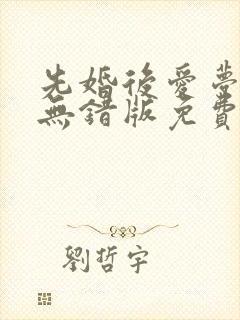 先婚後愛夢
無錯版免費
劉哲宇